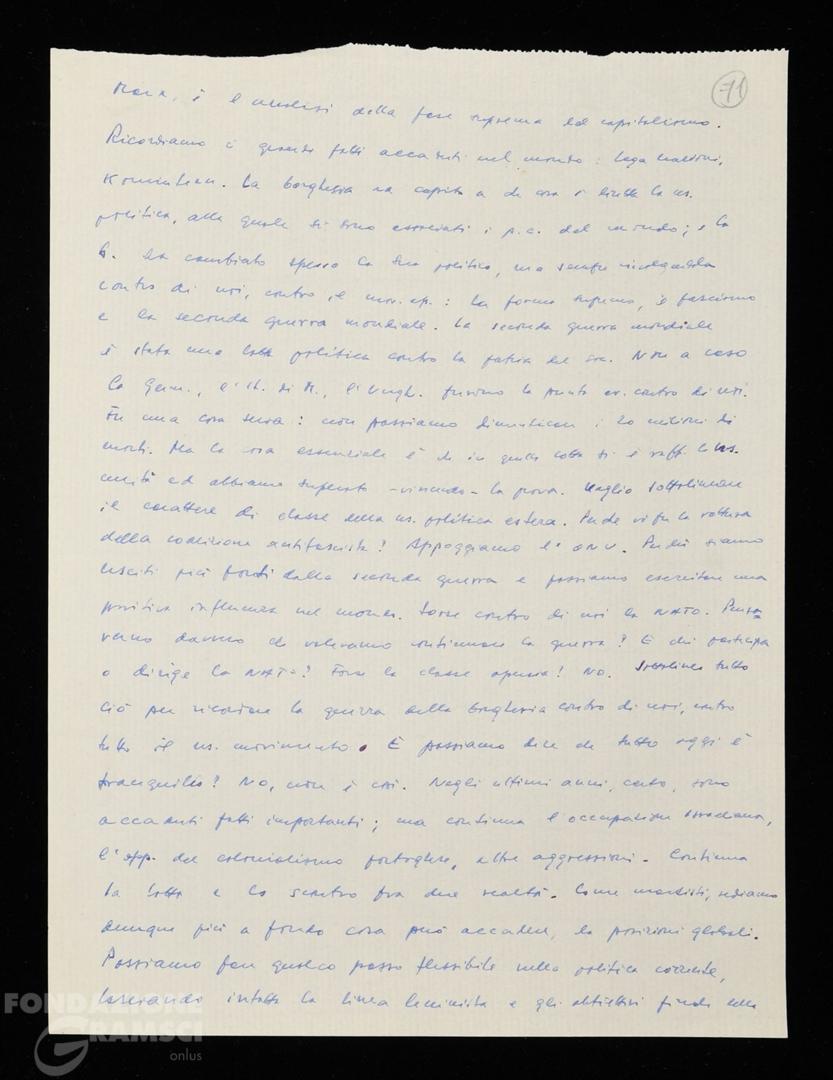 71
Marx, è l'analisi della fase suprema del capitalismo.
Ricordiamo i grandi fatti accaduti nel mondo: Lega nazioni,
Komintern. La borghesia ha capito a che cosa è diretta la ns.
politica, alla quale si sono associati i p.c. del mondo; e la
b. ha cambiato spesso la sua politica, ma sempre rivolgendola
contro di noi, contro il mov. op.: la forma suprema, il fascismo
e la seconda guerra mondiale. La seconda guerra mondiale
è stata una lotta politica contro la patria del soc. Non a caso
la Germ., l'It. di M., l'Ungh. furono la punta av. contro di noi.
Fu una cosa seria: non possiamo dimenticare i 20 milioni di
morti. Ma la cosa essenziale è che in quella lotta si è raff. la ns.
unità ed abbiamo superato - vincendo - la prova. Voglio sottolineare
il carattere di classe della ns. politica estera. Perché vi fu la rottura
della coalizione antifascista? Appoggiamo l'ONU. Perché siamo
usciti più forti dalla seconda guerra e possiamo esercitare una
positiva influenza nel mondo. Sorse contro di noi la NATO. Pensa=
vano davvero che volevamo continuare la guerra? E chi partecipa
o dirige la NATO? Forse la classe operaia? No. Sottolineo tutto
ciò per ricordare la guerra della borghesia contro di noi, contro
tutto il ns. movimento. E possiamo dire che tutto oggi è
tranquillo? No, non è così. Negli ultimi anni, certo, sono
accaduti fatti importanti; ma continua l'occupazione israeliana,
l'opp. del colonialismo portoghese, altre aggressioni. Continua
la lotta e lo scontro fra due realtà. Come marxisti, vediamo
dunque più a fondo cosa può accadere, le posizioni globali.
Possiamo fare qualche passo flessibile nella politica corrente,
lasciando intatta la linea leninista e gli obiettivi finali della
FONDAZIONE
GRAMSCI
onlus